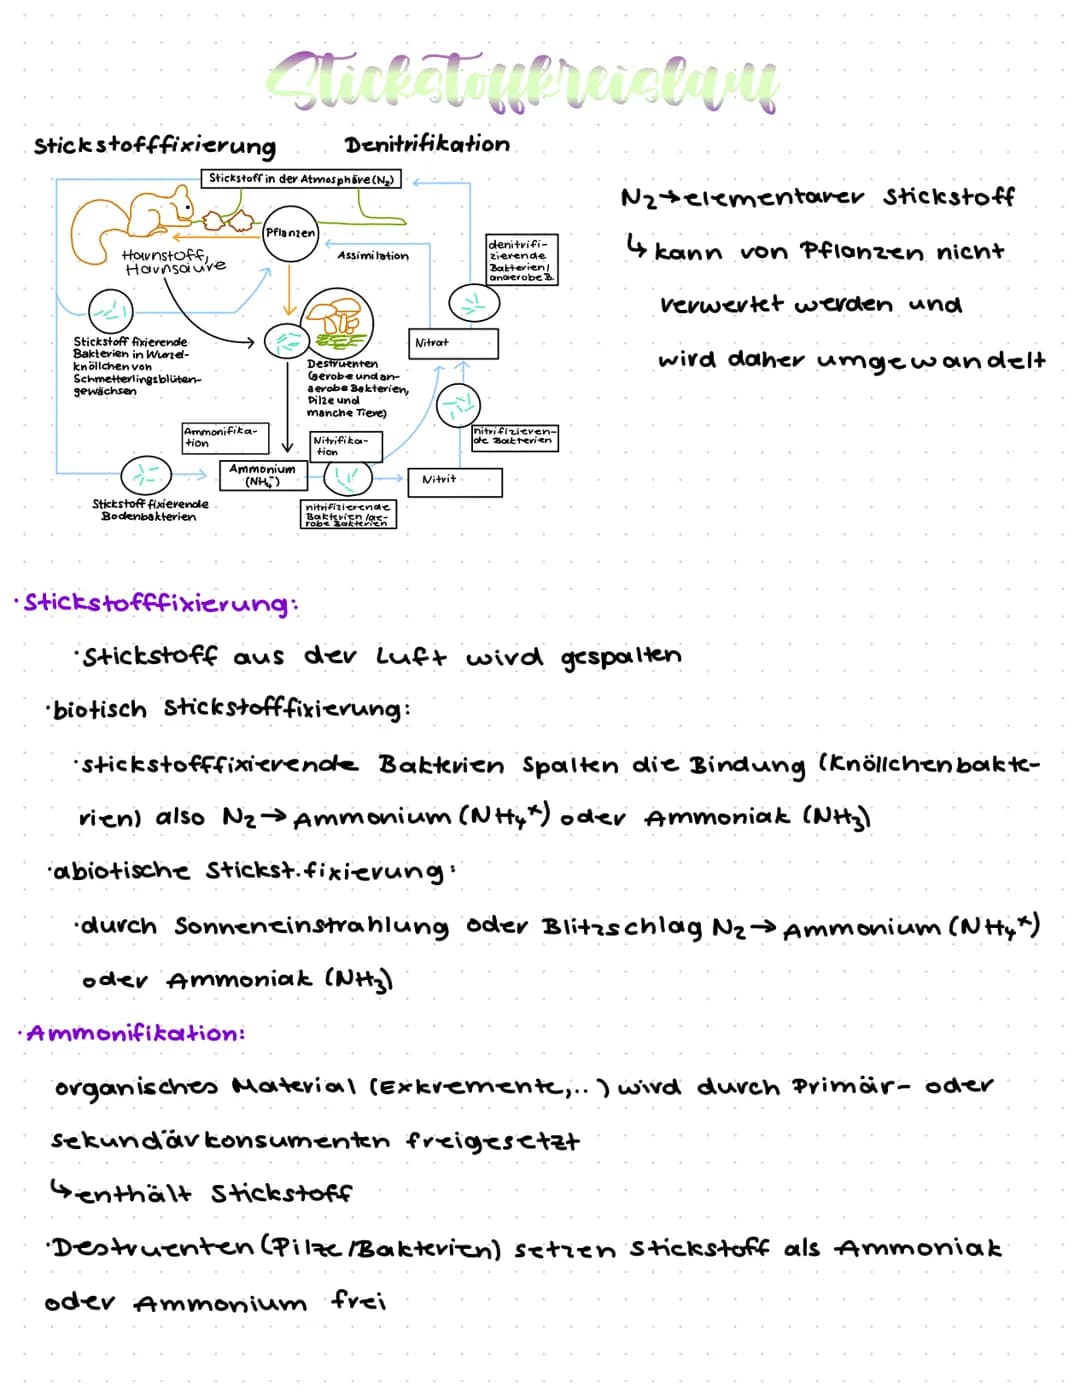 Stickstoffkreislauf
Stickstofffixierung
Denitrifikation
Stickstoff in der Atmosphäre (N₂)
Pflanzen
Harnstoff,
Harnsäure
Assimilation
denitrifi-
zierende
Bakterien/
anaerobe B.
Stickstoff fixierende
Bakterien in Wurzel-
knöllchen von
Schmetterlingsblüten-
gewächsen
Destruenten
(aerobe und an-
aerobe Bakterien,
Pilze und
manche Tiere)
Nitrat
Ammonifika-
tion
Nitrifika-
tion
nitrifizieren-
de Bakterien
Ammonium
(NH₄⁺)
Nitrit
Stickstoff fixierende
Bodenbakterien
nitrifizierende
Bakterien/ae-
robe Bakterien
N₂→elementarer Stickstoff
↳ kann von Pflanzen nicht
verwertet werden und
wird daher umgewandelt
·Stickstofffixierung:
·Stickstoff aus der Luft wird gespalten
·biotisch Stickstofffixierung:
·stickstofffixierende Bakterien Spalten die Bindung (Knöllchenbakte-
rien) also N₂→Ammonium (NH₄⁺) oder Ammoniak (NH₃)
·abiotische Stickst.fixierung:
·durch Sonneneinstrahlung oder Blitzschlag N₂→Ammonium (NH₄⁺)
oder Ammoniak (NH₃)
·Ammonifikation:
organisches Material (Exkremente,..) wird durch Primär- oder
sekundärkonsumenten freigesetzt
↳enthält Stickstoff
·Destruenten (Pilze/Bakterien) setzen Stickstoff als Ammoniak
oder Ammonium frei